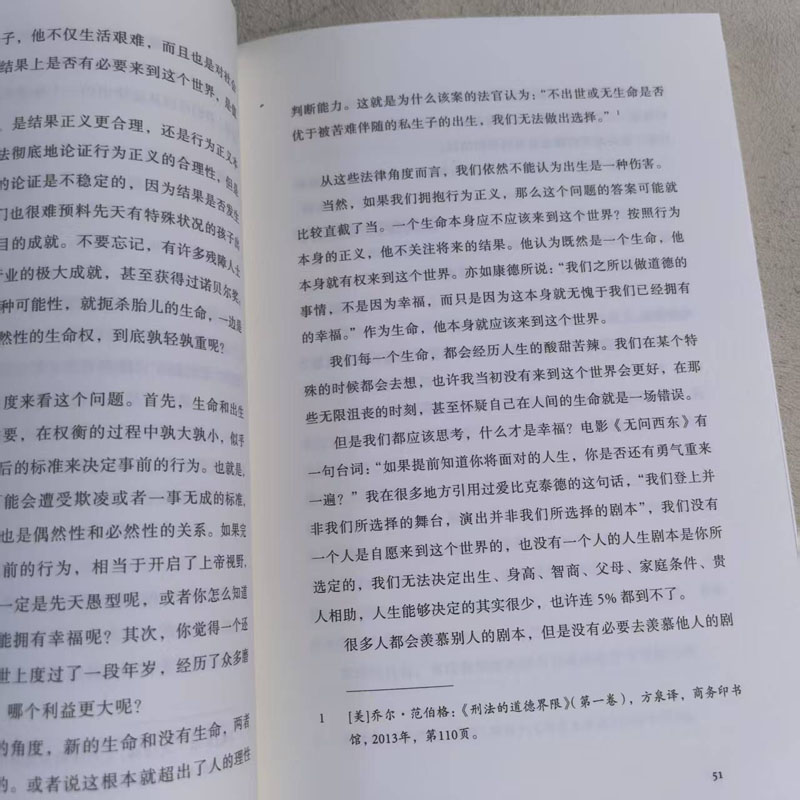 子，他不仅生活艰难，而且也是对社会
结果上是否有必要来到这个世界，是
是结果正义更合理，还是行为正义
法彻底地论证行为正义的合理性，但是
的论证是不稳定的，因为结果是否发生
们也很难预料先天有特殊状况的孩子的
目的成就。不要忘记，有许多残障人士
业的极大成就，甚至获得过诺贝尔奖。
种可能性，就扼杀胎儿的生命，一边是
然性的生命权，到底孰轻孰重呢？
度来看这个问题。首先，生命和出生
要，在权衡的过程中孰大孰小，似乎
后的标准来决定事前的行为。也就是，
可能会遭受欺凌或者一事无成的标准，
也是偶然性和必然性的关系。如果完
前的行为，相当于开启了上帝视野，
一定是先天愚型呢，或者你怎么知道
能拥有幸福呢？其次，你觉得一个还
世上度过了一段年岁，经历了众多酷
哪个利益更大呢？
的角度，新的生命和没有生命，两者
的。或者说这根本就超出了人的理性
判断能力。这就是为什么该案的法官认为：“不出世或无生命是否
优于被苦难伴随的私生子的出生，我们无法做出选择。”1
从这些法律角度而言，我们依然不能认为出生是一种伤害。
当然，如果我们拥抱行为正义，那么这个问题的答案可能就
比较直截了当。一个生命本身应不应该来到这个世界？按照行为
本身的正义，他不关注将来的结果。他认为既然是一个生命，他
本身就有权来到这个世界。亦如康德所说：“我们之所以做道德的
事情，不是因为幸福，而只是因为这本身就无愧于我们已经拥有
的幸福。”作为生命，他本身就应该来到这个世界。
我们每一个生命，都会经历人生的酸甜苦辣。我们在某个特
殊的时候都会去想，也许我当初没有来到这个世界会更好，在那
些无限沮丧的时刻，甚至怀疑自己在人间的生命就是一场错误。
但是我们都应该思考，什么才是幸福？电影《无问西东》有
一句台词：“如果提前知道你将面对的人生，你是否还有勇气重来
一遍？”我在很多地方引用过爱比克泰德的这句话，“我们登上并
非我们所选择的舞台，演出并非我们所选择的剧本”，我们没有
一个人是自愿来到这个世界的，也没有一个人的人生剧本是你所
选定的，我们无法决定出生、身高、智商、父母、家庭条件、贵
人相助，人生能够决定的其实很少，也许连 5% 都到不了。
很多人都会羡慕别人的剧本，但是没有必要去羡慕他人的剧
1 [美]乔尔·范伯格：《刑法的道德界限》（第一卷），方泉译，商务印书
馆，2013年，第110页。
51